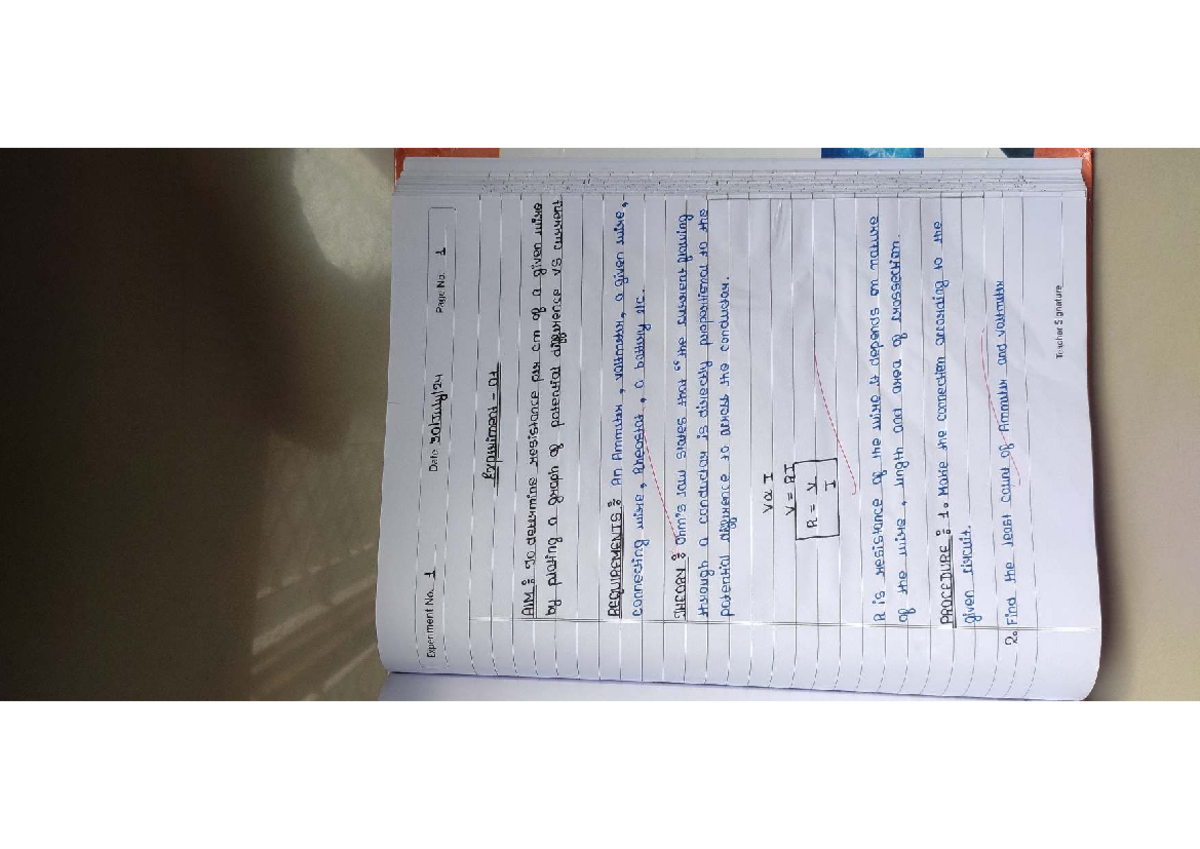 Experiment No. 1 Date 30/July/24 Page No. 1
Experiment - 01
AIM : To determine resistance per cm of a given wire
by plotting a graph of potential difference vs current
REQUIREMENTS : An Ammeter, voltmeter, a given wire,
connecting wires, Rheostat, a battery etc.
THEORY : Ohm's law states that "the current flowing
through a conductor is directly proportional to the
potential difference across the conductor.
V α I
V = RI
R = V
I
R is resistance of the wire it depends on nature
of the wire, length and area of crossection.
PROCEDURE : 1. Make the connection according to the
given circuit.
2. Find the least count of Ammeter and voltmeter
Teacher Signature